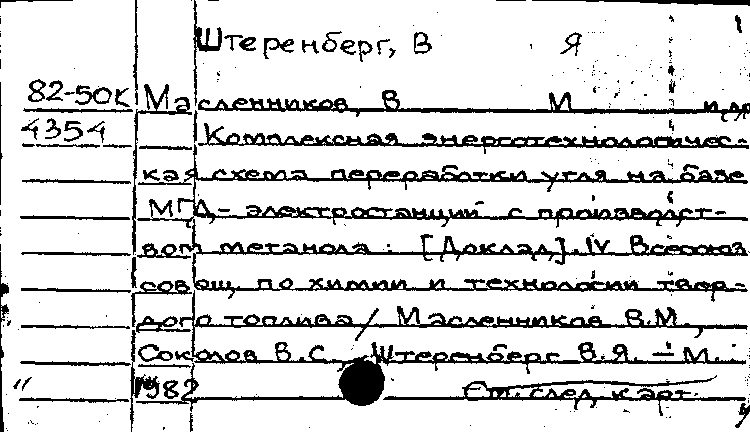 Штеренберг, В Я
82-50К Масленников, В М и др
4354 Комплексная энерготехнологичес-
кая схема переработки угля на базе
МГД - электростанций с производст-
вом метанола : [Доклад]. IV Всесоюз
совещ. по химии и технологии твер-
дого топлива / Масленников В.М.,
Соколов В.С., Штеренберг В.Я. - М.:
1982 См. след. карт.